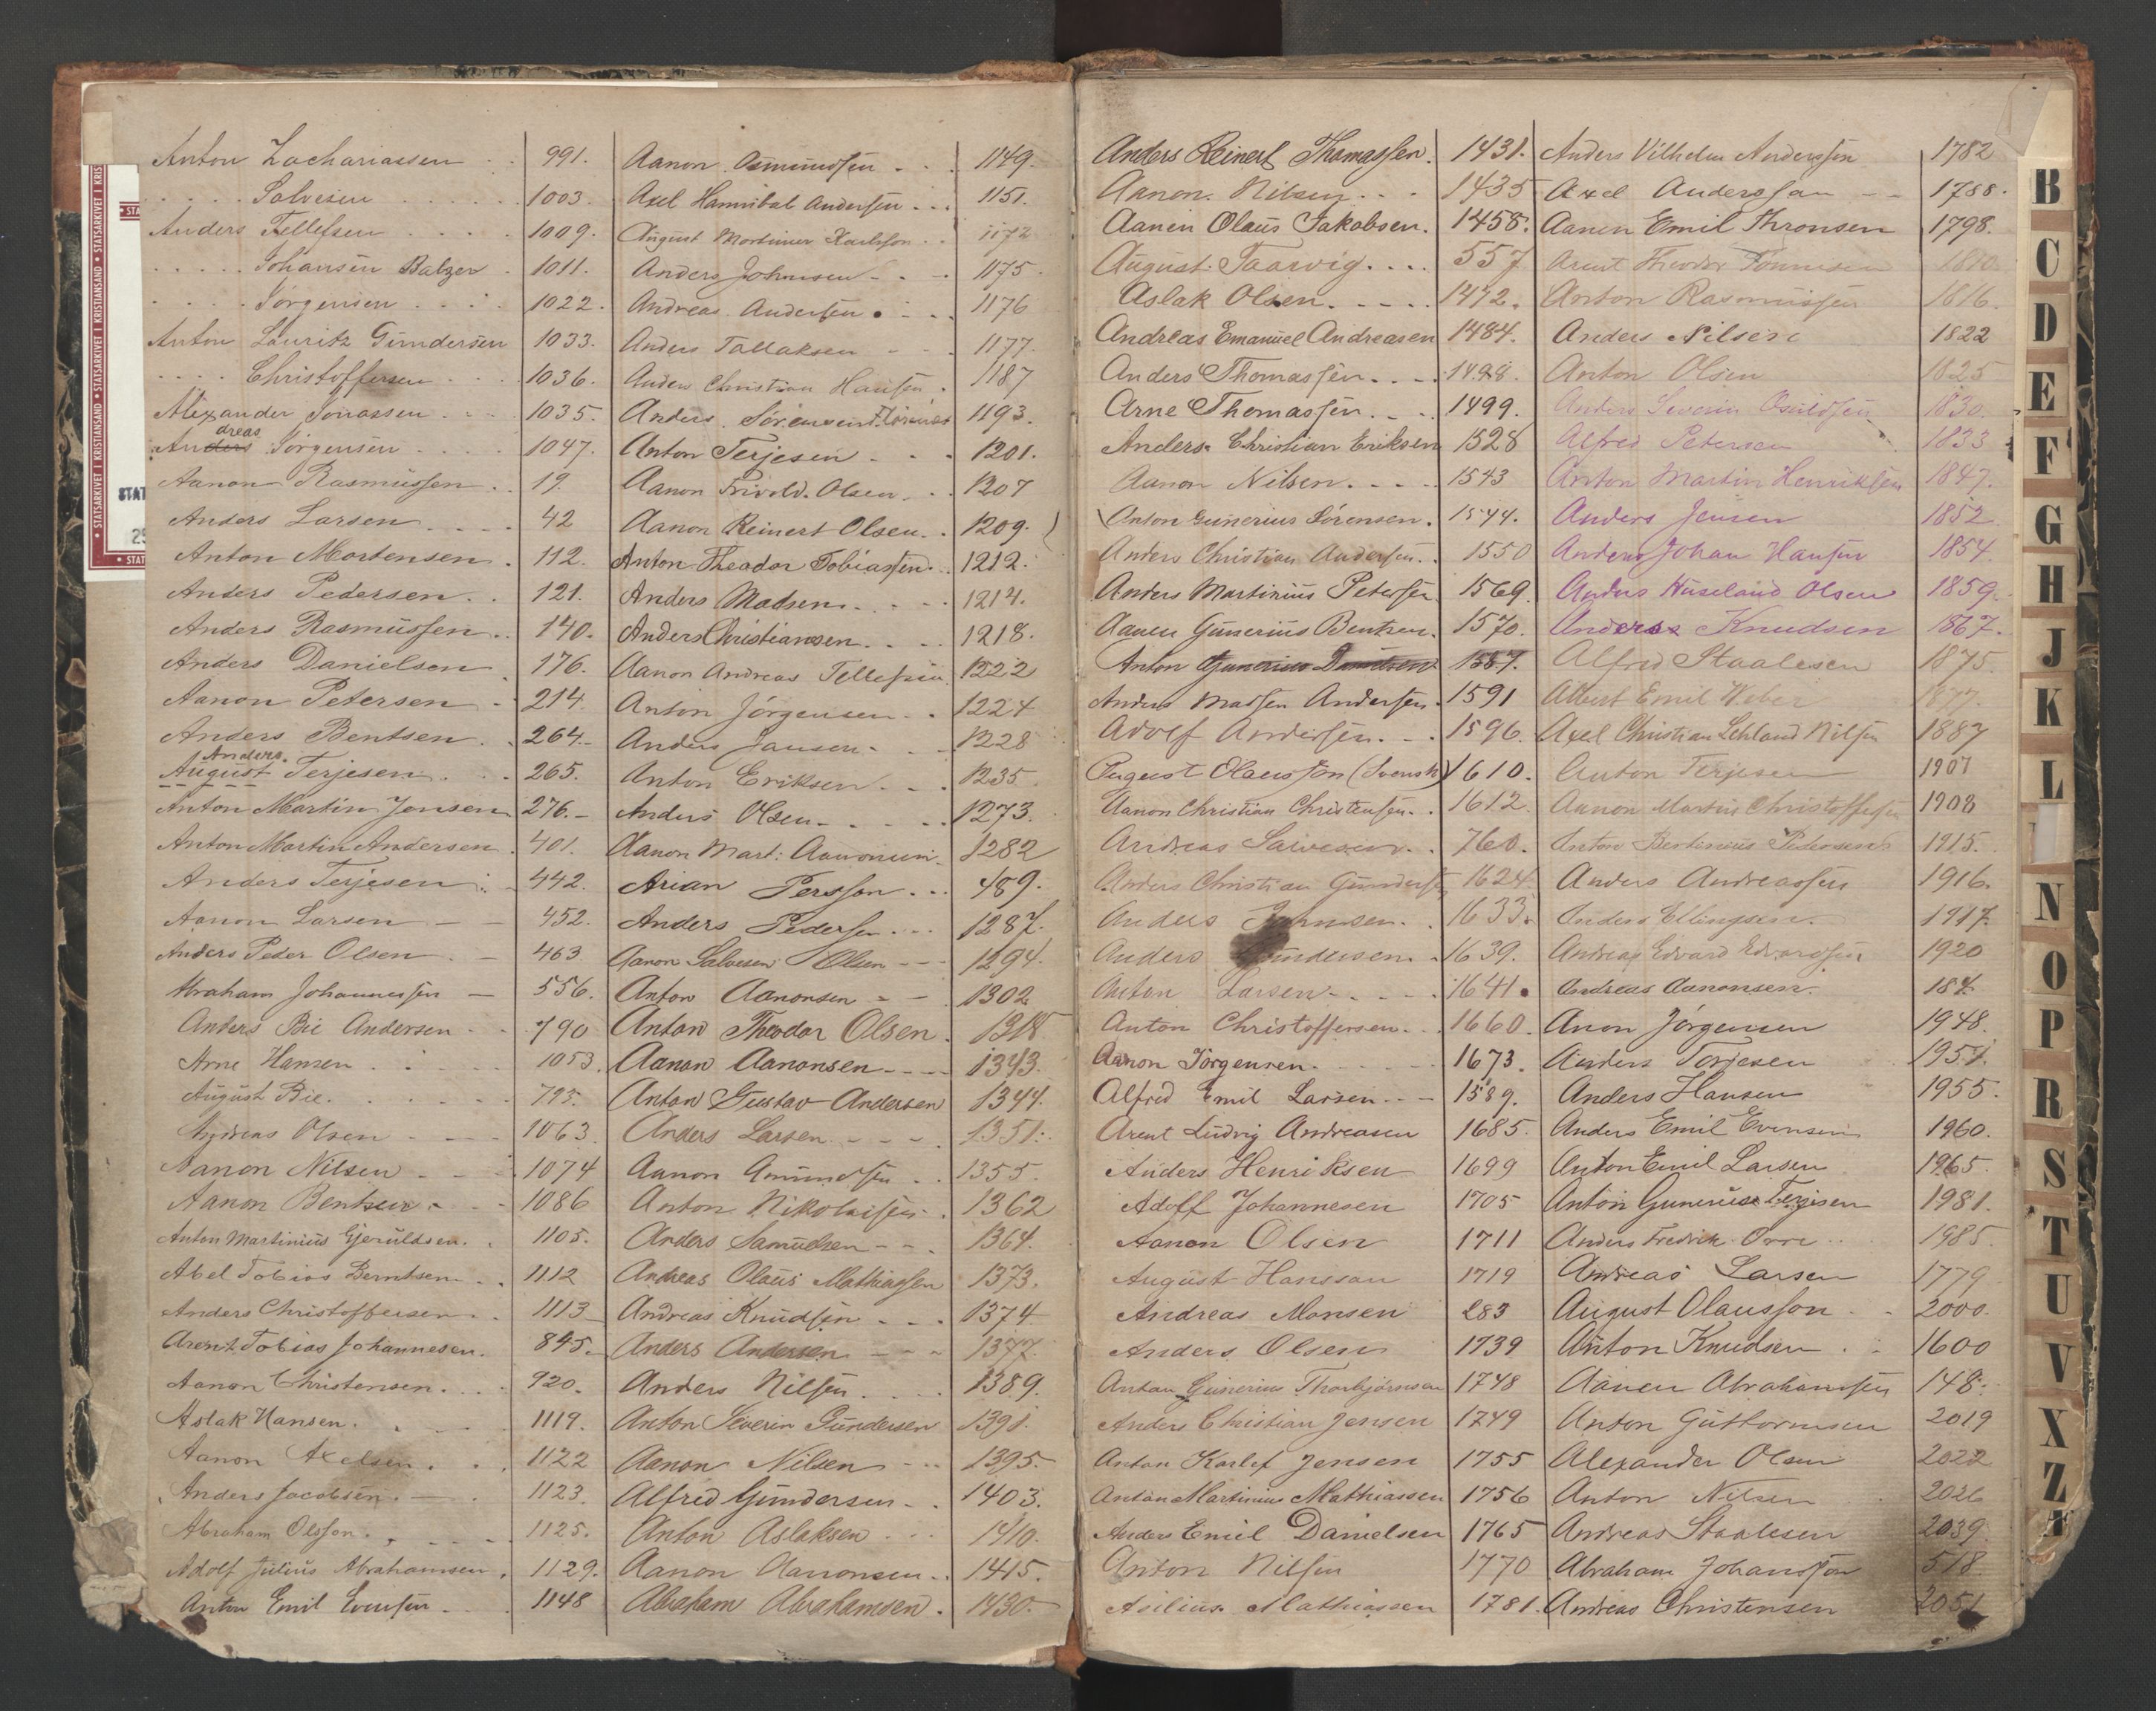 Anton Zachariassen . . 991.
. . . . . Salvesen . . . . . 1003.
Anders Tellefsen . . . . . 1009.
. . . . . Johansen Balzer . 1011.
. . . . Jørgensen . . . . 1022.
Anton Lauritz Gundersen 1033.
. . . . Christoffersen . . . 1036.
Alexander Jonassen . . . 1035.
dreas
Anders Jørgensen . . . . 1047.
Aanon Rasmussen . . 19.
Anders Larsen . . . . 42
Anton Mortensen . 112.
Anders Pedersen . . 121.
Anders Rasmussen . . 140.
Anders Danielsen . 176.
Aanon Petersen - 214.
Anders Bentsen . . 264.-
Anders.
August Terjesen . . . 265.
Anton Martin Jensen 276.-
Anton Martin Andersen . 401.
Anders Terjesen . . 442.
Aanon Larsen - - 452.
Anders Peder Olsen . - 463
Abraham Johannessen - 556.
Anders Bie Andersen - - 790
Arne Hansen . . . . 1053.
August Bie . . . . . . 795.
Andreas Olsen - - - - 1063.
Aanon Nilsen - - - 1074
Aanon Bentsen - - 1086
Anton Martinius Gjeruldsen . . 1105.
Abel Tobias Berntsen . . 1112
Anders Christoffersen . . 1113
Arent Tobias Johannesen. 845.
Aanon Christensen . . . 920.
Aslak Hansen . . . . 1119.
Aanon Axelsen . . . 1122
Anders Jacobsen . - . 1123.
Abraham Olsson . . . . . 1125.
Adolf Julius Abrahamsen . 1129.
Anton Emil Evensen . . . 1148
Aanon Osmundsen . . . 1149.
Axel Hannibal Andersen . . . 1151.
August Mortimer Karlsson . . 1172
Anders Johnsen - . - 1175.
Andreas Andersen . . . . 1176
Anders Tallaksen - - - 1177.
Anders Christian Hansen . 1187
Anders Sørensen 1193.
Anton Terjesen - - . 1201.
Aanon Trivold. Olsen . . . 1207
Aanon Reinert Olsen . . 1209.
Anton Theodor Tobiassen . . 1212.
Anders Madsen . . . . . 1214.
Anders Christiansen . . . . 1218.
Aanon Andreas Tellefsen 1222
Anton Jørgensen . . 1224
Anders Jansen . . . 1228
Anton Eriksen . . . 1235
Anders Olsen . . . . . 1273.
Aanon Mart: Aanonsen . 1282
Arian Persson . . . 489.
Anders Pedersen . . . 1287.
Aanon Salvesen Olsen - - - 1294.
Anton Aanonsen - - 1302
Anton Theodor Olsen . 1318
Aanon Aanonsen . . . . 1343.
Anton Gustav Andersen 1344.
Anders Larsen - - - . 1351.
Aanon Amundsen . . 1355.
Anton Nikolaisen . 1362
Anders Samuelsen - - . 1364.
Andreas Olaus Mathiassen 1373.
Andreas Knudsen . . . 1374
Anders Andersen - - - 1377.
Anders Nilsen . . . . 1389.
Anton Severin Gundersen 1391.
Aanon Nilsen - - - 1395.
Alfred Gundersen . . 1403.
Anton Aslaksen . . . 1410.
Aanon Aanonsen . . 1415.
Abraham Abrahamsen . 1430.
Anders Reinert Thomassen. 1431.
Aanon. Nilsen . . . 1435
Aanen Olaus Jakobsen. 1458.
August. Taarvig . . . . 557
Aslak Olsen . . . . . 1472.
Andreas Emanuel Andreasen 1484.
Anders Thomassen . . . . 1498.
Arne Thomassen . . . 1499.
Anders. Christian Eriksen 1528
Aanon Nilsen . . . . 1543
Anton Gunerius Sørensen. 1544.
Anders Christian Andersen . . 1550
Anders Martinius Petersen. 1569.
Aanen Gunerius Bentsen. 1570.
Anton Gunerius 1587.
Anders Madsen Andersen. 1591
Adolf Andersen . . . 1596.
August Olausson (Svensk) 1610.
Aanon Christian Christensen . . 1612
Andreas Salvesen . . 760.
Anders Christian Gundersen 1624.
Anders Johnsen . . 1633.
Anders Gundersen . . 1639.
Anton Larsen . . . . . 1641.
Anton Christoffersen . . . 1660.
Aanon Jørgensen . . . . 1673.
Alfred Emil Larsen . . - 1589.
Arent Ludvig Andreasen 1685.
Anders Henriksen 1699
Adolf Johannesen 1705
Aanon Olsen 1711
August Hansson 1719
Andreas Monsen 283
Anders Olsen 1739
Anton Gunerius Thorbjørnsen 1748
Anders Christian Jensen 1749
Anton Karlef Jensen 1755
Anton Martinius Mathiassen 1756
Anders Emil Danielsen 1765
Anton Nilsen 1770
Asilius. Mathiassen 1781.
Anders Vilhelm Anderssen 1782
Axel Andersson - - 1788.
Aanen Emil Thronsen 1798.
Arent Theodor Tønnesen 1810.
Anton Rasmussen 1816
Anders Nilsen 1822
Anton Olsen 1825
Anders Severin Osuldsen 1830.
Alfred Petersen 1833
Anton Martin Henriksen 1847.
Anders Jensen 1852
Anders Johan Hansen 1854.
Anders Huseland Olsen 1859.
Anders Knudsen 1867.
Alfred Staalesen 1875.
Albert Emil Weber 1877.
Axel Christian Schland Nilsen 1887
Anton Terjesen 1907
Aanon Martin Christoffersen 1908
Anton Bertinius Pedersen 1915.
Anders Andreassen 1916.
Anders Ellingsen. 1917.
Andreas Edvard Edvardsen 1920
Andreas Aanonsen. 184.
Anon Jørgensen 1948.
Anders Torjesen 1954.
Anders Hansen 1955.
Anders Emil Evensen 1960.
Anton Emil Larsen 1965.
Anton Gunerius Terjesen 1981.
Anders Fredrik Orre . . 1985.
Andreas Larsen 1779
August Olausson . - 2000.
Anton Knudsen . . 1600
Aanen Abrahamsen 148.
Anton Guttormsen 2019
Alexander Olsen 2022
Anton Nilsen . 2026
Andreas Staalesen 2039
Abraham Johansson 518.
Andreas Christensen 2051
B
C
D
E
F
G
H
J
K
L
N
O
P
R
S
T
U
V
X
Z
STATSARKIVET I KRISTIANSAND • STATSARKIVET I KRISTIANSAND • STATSARKIVET I KRIS
STAT